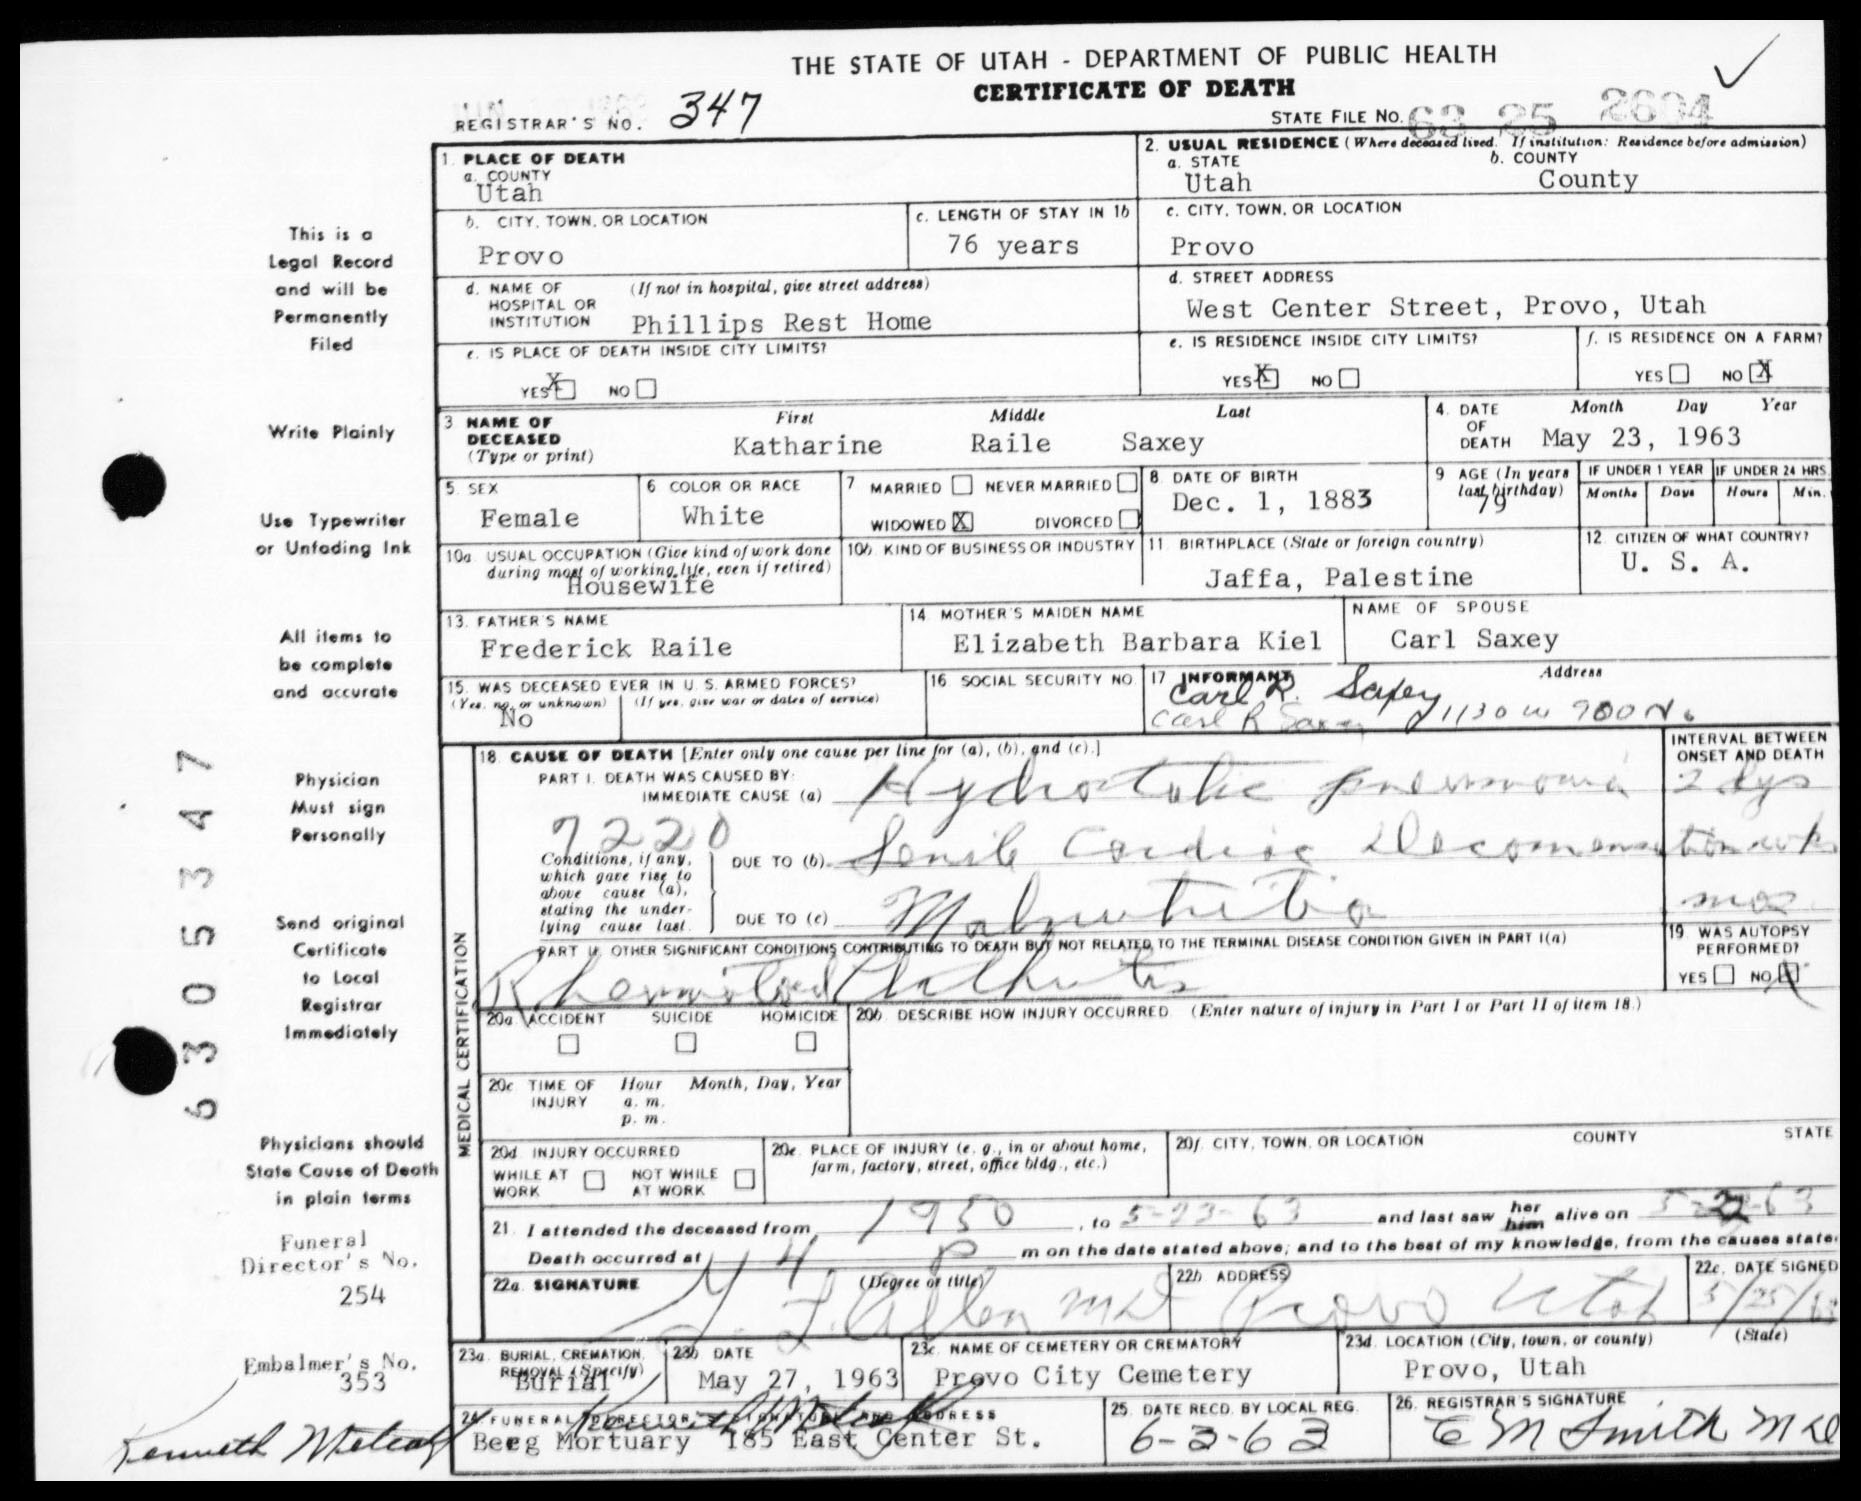 THE STATE OF UTAH - DEPARTMENT OF PUBLIC HEALTH
CERTIFICATE OF DEATH
REGISTRAR'S NO. 347
STATE FILE NO. 63 25 2604
1. PLACE OF DEATH
a. COUNTY
Utah
2. USUAL RESIDENCE (Where deceased lived. If institution: Residence before admission)
a. STATE b. COUNTY
Utah County
b. CITY, TOWN, OR LOCATION
Provo
c. LENGTH OF STAY IN 1b
76 years
c. CITY, TOWN, OR LOCATION
Provo
d. NAME OF HOSPITAL OR INSTITUTION (If not in hospital, give street address)
Phillips Rest Home
d. STREET ADDRESS
West Center Street, Provo, Utah
e. IS PLACE OF DEATH INSIDE CITY LIMITS?
YES X NO
e. IS RESIDENCE INSIDE CITY LIMITS?
YES X NO
f. IS RESIDENCE ON A FARM?
YES NO X
3 NAME OF DECEASED (Type or print)
First Middle Last
Katharine Raile Saxey
4. DATE OF DEATH
Month Day Year
May 23, 1963
5. SEX
Female
6 COLOR OR RACE
White
7 MARRIED NEVER MARRIED
WIDOWED X DIVORCED
8. DATE OF BIRTH
Dec. 1, 1883
9 AGE (In years last birthday)
79
IF UNDER 1 YEAR IF UNDER 24 HRS.
Months Days Hours Min.
10a USUAL OCCUPATION (Give kind of work done during most of working life, even if retired)
Housewife
10b. KIND OF BUSINESS OR INDUSTRY
11. BIRTHPLACE (State or foreign country)
Jaffa, Palestine
12. CITIZEN OF WHAT COUNTRY?
U. S. A.
13. FATHER'S NAME
Frederick Raile
14. MOTHER'S MAIDEN NAME
Elizabeth Barbara Kiel
NAME OF SPOUSE
Carl Saxey
15. WAS DECEASED EVER IN U. S. ARMED FORCES?
(Yes, no, or unknown) (If yes, give war or dates of service)
No
16 SOCIAL SECURITY NO.
17 INFORMANT Address
Carl R. Saxey
Carl R Saxey 1130 W 900 N.
MEDICAL CERTIFICATION
18. CAUSE OF DEATH [Enter only one cause per line for (a), (b), and (c).]
INTERVAL BETWEEN ONSET AND DEATH
PART I. DEATH WAS CAUSED BY:
IMMEDIATE CAUSE (a) Hydrostatic pneumonia 2 dys
7220
Conditions, if any, which gave rise to above cause (a), stating the underlying cause last.
DUE TO (b) Senile Cardiac Decomensation wks
DUE TO (c) Malnutrition mos.
PART II. OTHER SIGNIFICANT CONDITIONS CONTRIBUTING TO DEATH BUT NOT RELATED TO THE TERMINAL DISEASE CONDITION GIVEN IN PART I(a)
Rheumatoid Arthritis
19. WAS AUTOPSY PERFORMED?
YES NO X
20a. ACCIDENT SUICIDE HOMICIDE
20b. DESCRIBE HOW INJURY OCCURRED. (Enter nature of injury in Part I or Part II of item 18.)
20c TIME OF INJURY
Hour Month, Day, Year
a. m.
p. m.
20d. INJURY OCCURRED
WHILE AT WORK NOT WHILE AT WORK
20e. PLACE OF INJURY (e. g., in or about home, farm, factory, street, office bldg., etc.)
20f. CITY, TOWN, OR LOCATION COUNTY STATE
21. I attended the deceased from 1950, to 5-23-63 and last saw her him alive on 5-22-63
Death occurred at 4 P m on the date stated above; and to the best of my knowledge, from the causes state
22a. SIGNATURE (Degree or title)
Allen MD
22b ADDRESS
Provo Utah
22c. DATE SIGNED
5/25/63
23a. BURIAL, CREMATION, REMOVAL (Specify)
Burial
23b DATE
May 27, 1963
23c. NAME OF CEMETERY OR CREMATORY
Provo City Cemetery
23d. LOCATION (City, town, or county) (State)
Provo, Utah
24. FUNERAL DIRECTOR'S SIGNATURE AND ADDRESS
Kenneth Metcalf
Berg Mortuary 185 East Center St.
25. DATE RECD. BY LOCAL REG.
6-3-63
26. REGISTRAR'S SIGNATURE
C M Smith MD
This is a
Legal Record
and will be
Permanently
Filed
Write Plainly
Use Typewriter
or Unfading Ink
All items to
be complete
and accurate
Physician
Must sign
Personally
Send original
Certificate
to Local
Registrar
Immediately
Physicians should
State Cause of Death
in plain terms
Funeral
Director's No.
254
Embalmer's No.
353
Kenneth Metcalf
6305347